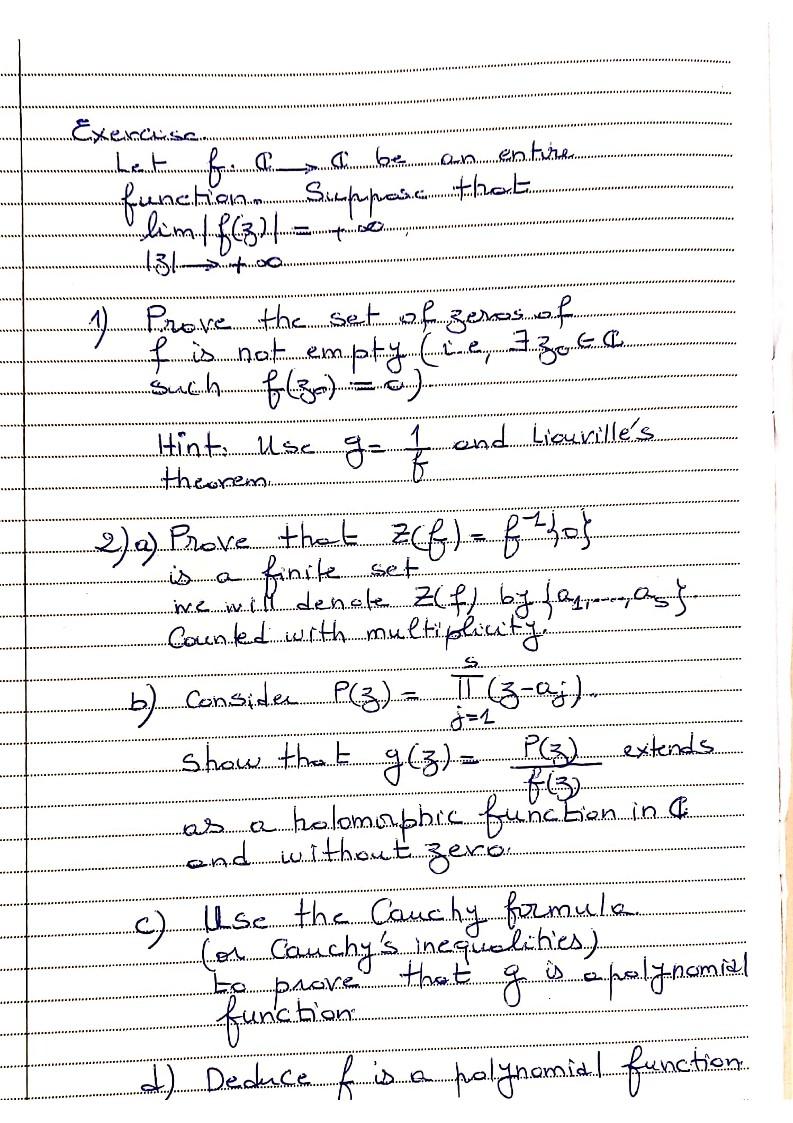 Exercise.
Let f: ℂ → ℂ be an entire
function. Suppose that
lim |f(z)| = +∞.
|z| → +∞
1) Prove the set of zeros of
f is not empty (i.e, ∃ z₀ ∈ ℂ
such f(z₀) = 0)
Hint: Use g = 1/f and Liouville's
theorem.
2) a) Prove that Z(f) = f⁻¹{0}
is a finite set
we will denote Z(f) by {a₁,...,aₛ}.
Counted with multiplicity.
b) Consider P(z) = ∏_{j=1}^{s} (z-aⱼ).
Show that g(z) = P(z)/f(z) extends
as a holomorphic function in ℂ
and without zero.
c) Use the Cauchy formula
(or Cauchy's inequalities)
to prove that g is a polynomial
function
d) Deduce f is a polynomial function